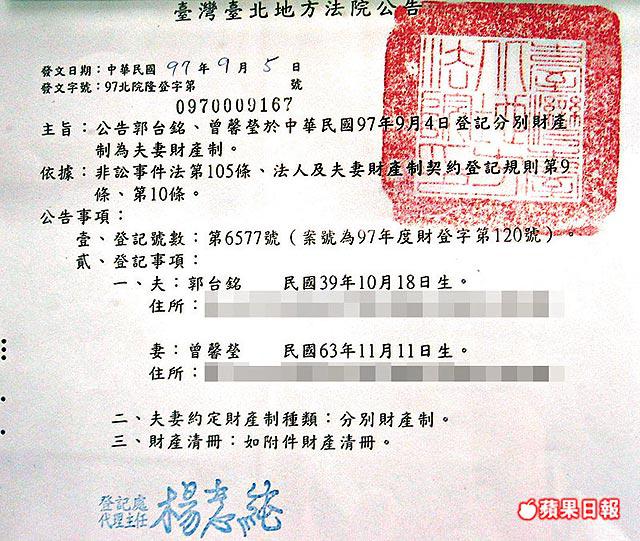 臺灣臺北地方法院公告
發文日期：中華民國 97 年 9 月 5 日
發文字號：97北院隆登字第 號
0970009167
主旨：公告郭台銘、曾馨瑩於中華民國97年9月4日登記分別財產
制為夫妻財產制。
依據：非訟事件法第105條、法人及夫妻財產制契約登記規則第9
條、第10條。
公告事項：
壹、登記號數：第6577號（案號為97年度財登字第120號）。
貳、登記事項：
一、夫：郭台銘 民國39年10月18日生。
住所：
妻：曾馨瑩 民國63年11月11日生。
住所：
二、夫妻約定財產制種類：分別財產制。
三、財產清冊：如附件財產清冊。
登記處
代理主任 楊志純
蘋果日報